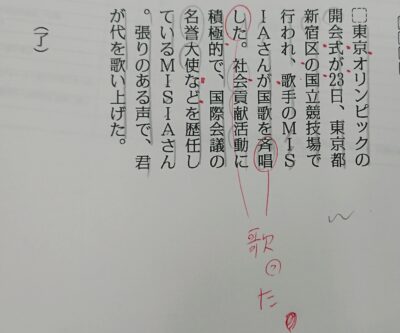 □ 東京オリンピックの
開会式が23日、東京都
新宿区の国立競技場で
行われ、歌手のMIS
IAさんが国歌を斉唱
した。社会貢献活動に
積極的で、国際会議の
名誉大使などを歴任し
ているMISIAさん
。張りのある声で、君
が代を歌い上げた。
(了)
歌った